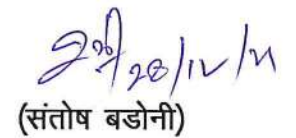 28/12/21
(संतोष बडोनी)